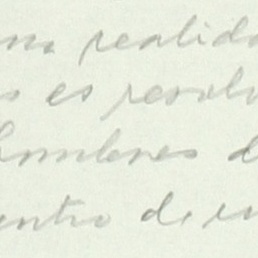 una realida
s es resolv
hombres d
entro de u